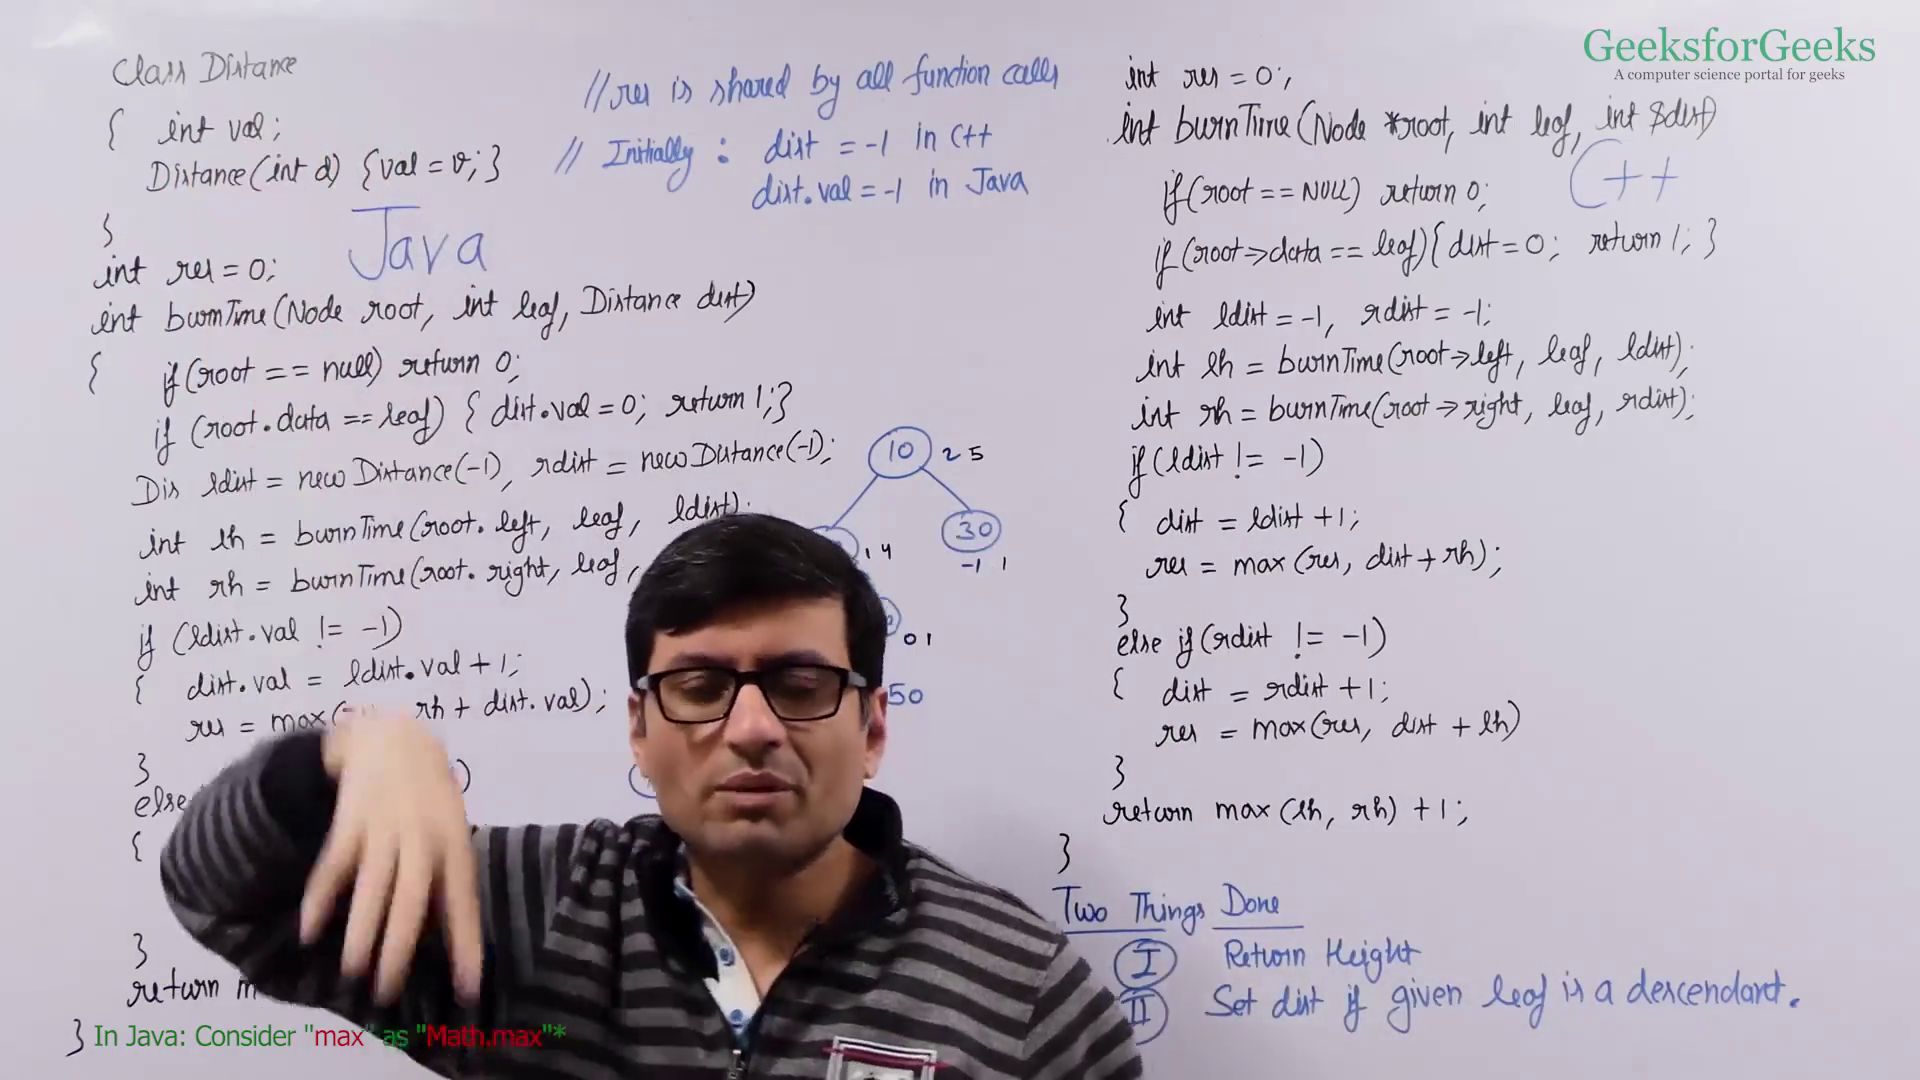 GeeksforGeeks
A computer science portal for geeks
Class Distance
{ int val;
Distance(int d) {val = v;}
}
Java
int res = 0;
int burnTime(Node root, int leaf, Distance dist)
{ if(root == null) return 0;
if (root.data == leaf) { dist.val = 0; return 1;}
Dis ldist = new Distance(-1), rdist = new Distance(-1);
int lh = burnTime(root.left, leaf, ldist);
int rh = burnTime(root.right, leaf,
if (ldist.val != -1)
{ dist.val = ldist.val + 1;
res = max( rh + dist.val);
}
else
{
}
return
}
In Java: Consider "max" as "Math.max"*
//res is shared by all function calls
// Initially : dist = -1 in C++
dist.val = -1 in Java
10 2 5
30
1 4
-1 1
0 1
50
int res = 0;
int burnTime(Node *root, int leaf, int &dist)
C++
if(root == NULL) return 0;
if(root->data == leaf){ dist = 0; return 1; }
int ldist = -1, rdist = -1;
int lh = burnTime(root->left, leaf, ldist);
int rh = burnTime(root->right, leaf, rdist);
if(ldist != -1)
{ dist = ldist + 1;
res = max (res, dist + rh);
}
else if(rdist != -1)
{ dist = rdist + 1;
res = max(res, dist + lh)
}
return max (lh, rh) + 1;
}
Two Things Done
I Return Height
II Set dist if given leaf is a descendant.